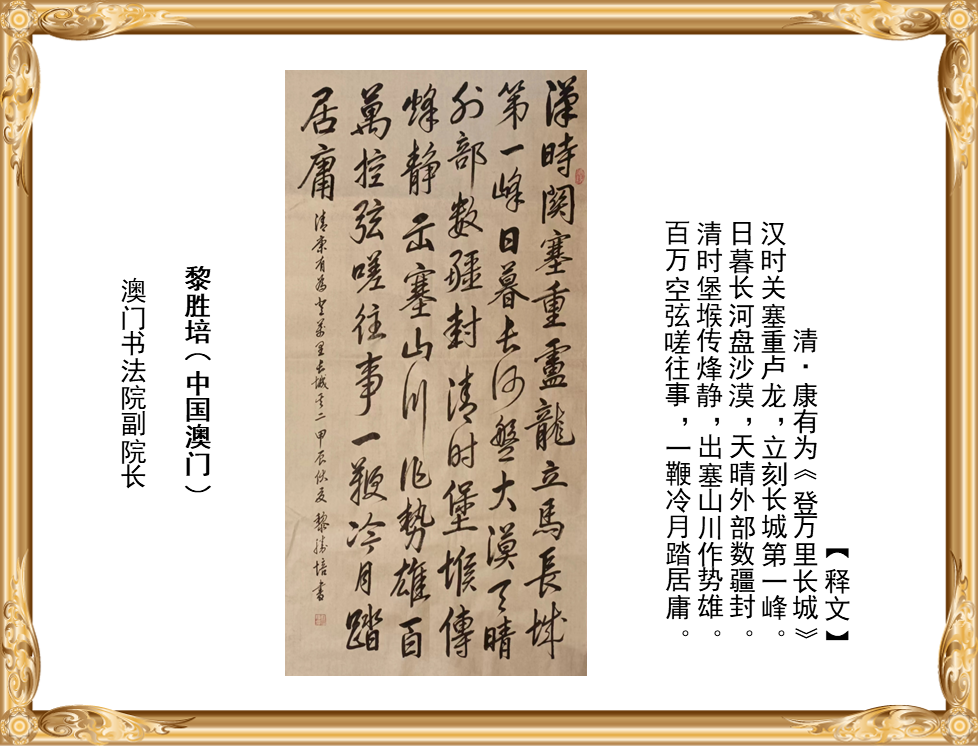 【释文】
清·康有为《登万里长城》
汉时关塞重卢龙，立刻长城第一峰。
日暮长河盘沙漠，天晴外部数疆封。
清时堡堠传烽静，出塞山川作势雄。
百万空弦嗟往事，一鞭冷月踏居庸。
漢時関塞重盧龍立馬長城
第一峰日暮长河盤大漠天晴
外部数疆封清时堡堠傳
烽静出塞山川作勢雄百
萬控弦嗟往事一鞭冷月踏
居庸
清康有為登萬里长城之二甲辰伏夏黎勝培書
黎胜培（中国澳门）
澳门书法院副院长